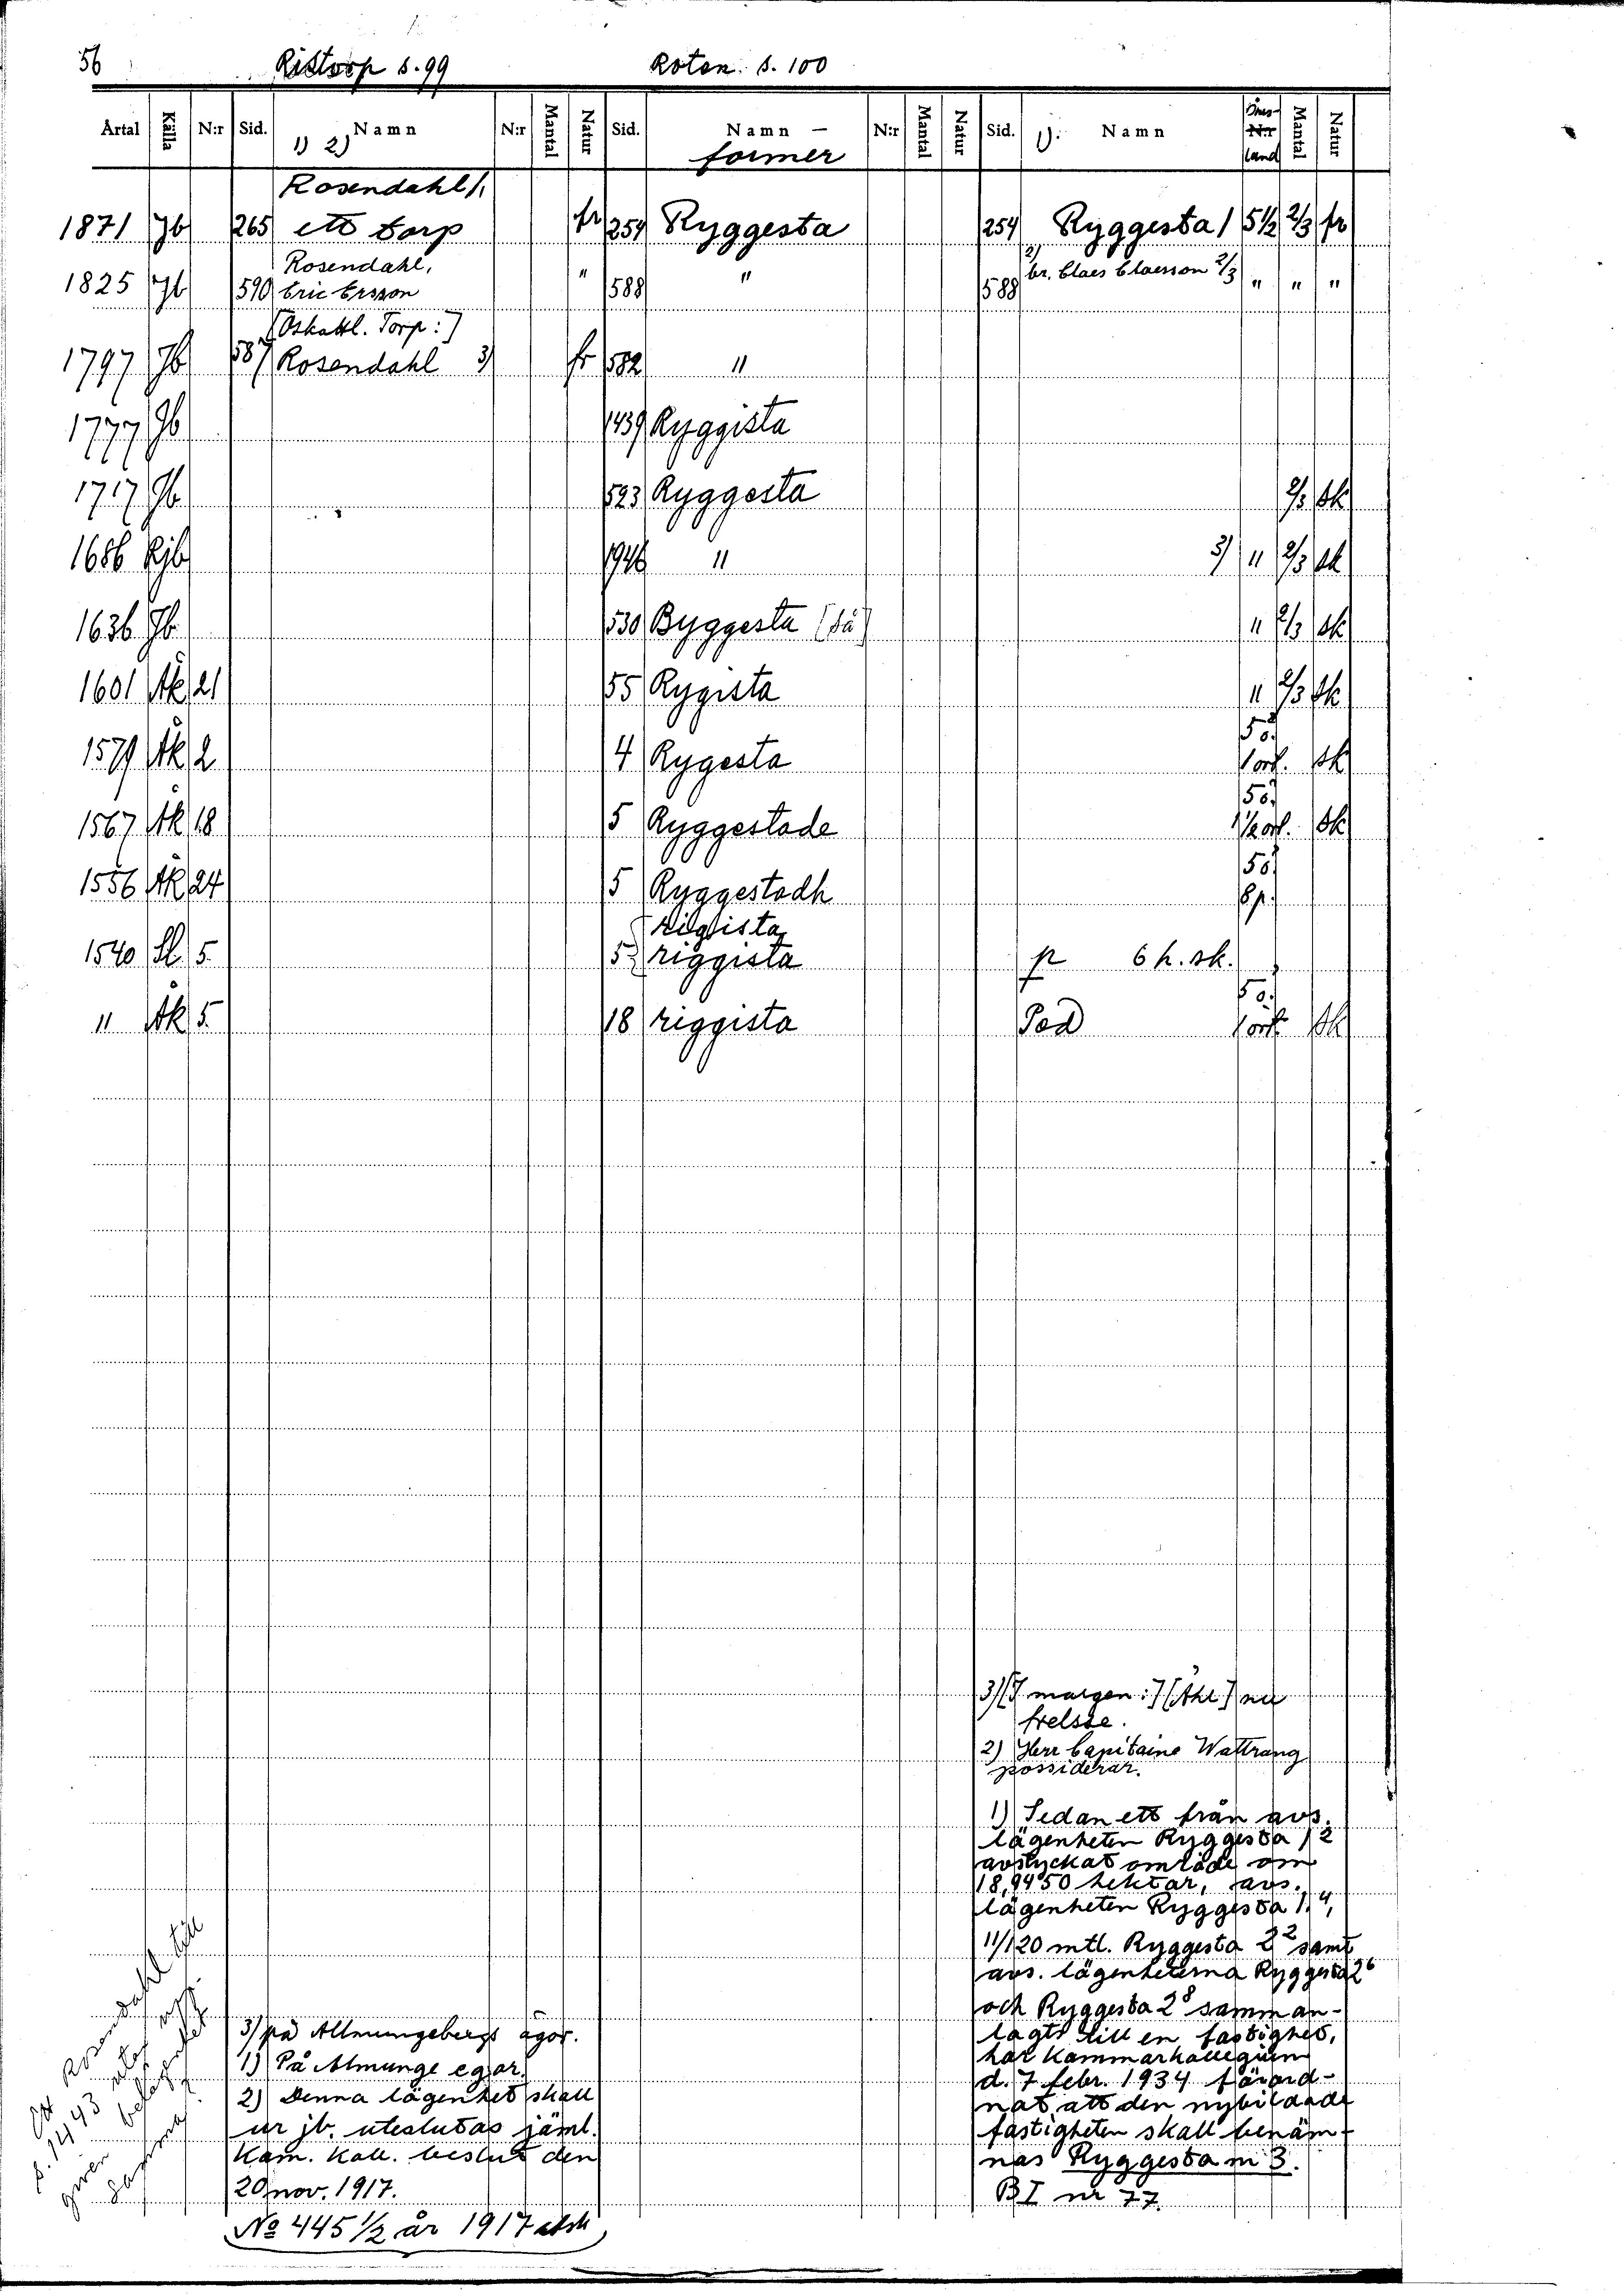 56 Ristorp s.99 Roten. s. 100
Årtal Källa N:r Sid. 1) 2) Namn N:r Mantal Natur Sid. Namn – former N:r Mantal Natur Sid. 1). Namn N:r land Mantal Natur
Rosendahl /.
1871 Jb 265 ett torp fr 254 Ryggesta 254 Ryggesta 1 5 1/2 2/3 fr
Rosendahl,
1825 Jb 590 Eric Ersson " 588 " 588 2) br. Claes Claesson 2/3 " " "
(Oskattl. Torp:)
1797 Jb 587 Rosendahl 3) fr 582 "
1777 Jb 1439 Ryggista
1717 Jb 523 Ryggesta 2/3 sk
1686 Rjb 1946 " 3) " 2/3 sk
1636 Jb 530 Byggesta (så) " 2/3 sk
1601 Hk 21 55 Rygista " 2/3 sk
1579 Hk 2 4 Rygesta 5ö. 1 ort. sk
1567 Hk 18 5 Ryggestade 5ö. 1/2 ort. sk
1556 Hk 24 5 Ryggestadh 5ö. 6p.
Rigista
1540 Sl. 5 5 riggista p 6 h. sk.
" Hk 5 18 riggista Ped 5ö. 1 ort sk
3) [I margen:] [Åhl] nu
frelsse.
2) Herr Capitaine Wattrang
possiderar.
1) Sedan ett från avs.
lägenheten Ryggesta 1 2
avstyckat område om
18,9450 hektar, avs.
lägenheten Ryggesta 1 4,
11/120 mtl. Ryggesta 2 2 samt
avs. lägenheterna Ryggesta 2 6
och Ryggesta 2 8 samman-
lagts till en fastighet,
har Kammarkollegium
d. 7 febr. 1934 förord-
nat, att den nybildade
fastigheten skall benäm-
nas Ryggesta nr 3.
BI nr 77.
3) på Allmungebergs ägor.
1) På Almunge egor.
2) Denna lägenhet skall
ur jb. uteslutas jäml.
Kam. Koll. beslut den
20 nov. 1917.
No 445 1/2 år 1917